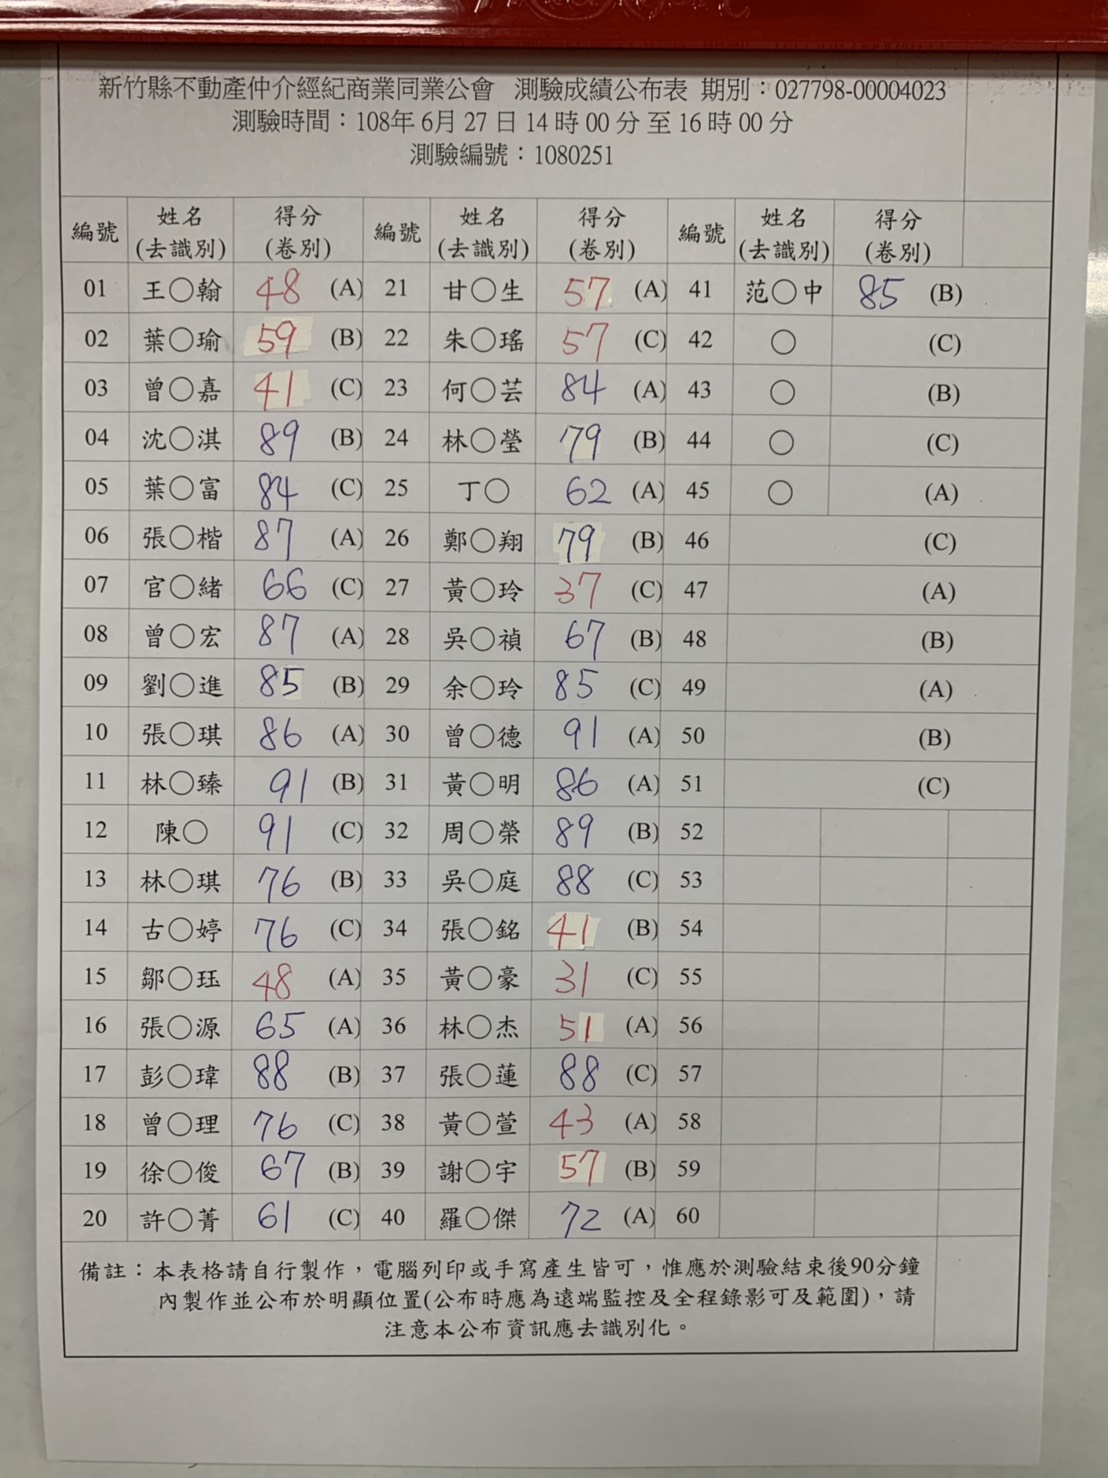 新竹縣不動產仲介經紀商業同業公會 測驗成績公布表 期別：027798-00004023
測驗時間：108年 6月 27 日 14 時 00 分 至 16 時 00 分
測驗編號：1080251
編號 姓名(去識別) 得分(卷別) 編號 姓名(去識別) 得分(卷別) 編號 姓名(去識別) 得分(卷別)
01 王○翰 48 (A) 21 甘○生 57 (A) 41 范○中 85 (B)
02 葉○瑜 59 (B) 22 朱○瑤 57 (C) 42 ○ (C)
03 曾○嘉 41 (C) 23 何○芸 84 (A) 43 ○ (B)
04 沈○淇 89 (B) 24 林○瑩 79 (B) 44 ○ (C)
05 葉○富 84 (C) 25 丁○ 62 (A) 45 ○ (A)
06 張○楷 87 (A) 26 鄭○翔 79 (B) 46 (C)
07 官○緒 66 (C) 27 黃○玲 37 (C) 47 (A)
08 曾○宏 87 (A) 28 吳○禎 67 (B) 48 (B)
09 劉○進 85 (B) 29 余○玲 85 (C) 49 (A)
10 張○琪 86 (A) 30 曾○德 91 (A) 50 (B)
11 林○臻 91 (B) 31 黃○明 86 (A) 51 (C)
12 陳○ 91 (C) 32 周○榮 89 (B) 52
13 林○琪 76 (B) 33 吳○庭 88 (C) 53
14 古○婷 76 (C) 34 張○銘 41 (B) 54
15 鄒○珏 48 (A) 35 黃○豪 31 (C) 55
16 張○源 65 (A) 36 林○杰 51 (A) 56
17 彭○瑋 88 (B) 37 張○蓮 88 (C) 57
18 曾○理 76 (C) 38 黃○萱 43 (A) 58
19 徐○俊 67 (B) 39 謝○宇 57 (B) 59
20 許○菁 61 (C) 40 羅○傑 72 (A) 60
備註：本表格請自行製作，電腦列印或手寫產生皆可，惟應於測驗結束後90分鐘
內製作並公布於明顯位置(公布時應為遠端監控及全程錄影可及範圍)，請
注意本公布資訊應去識別化。